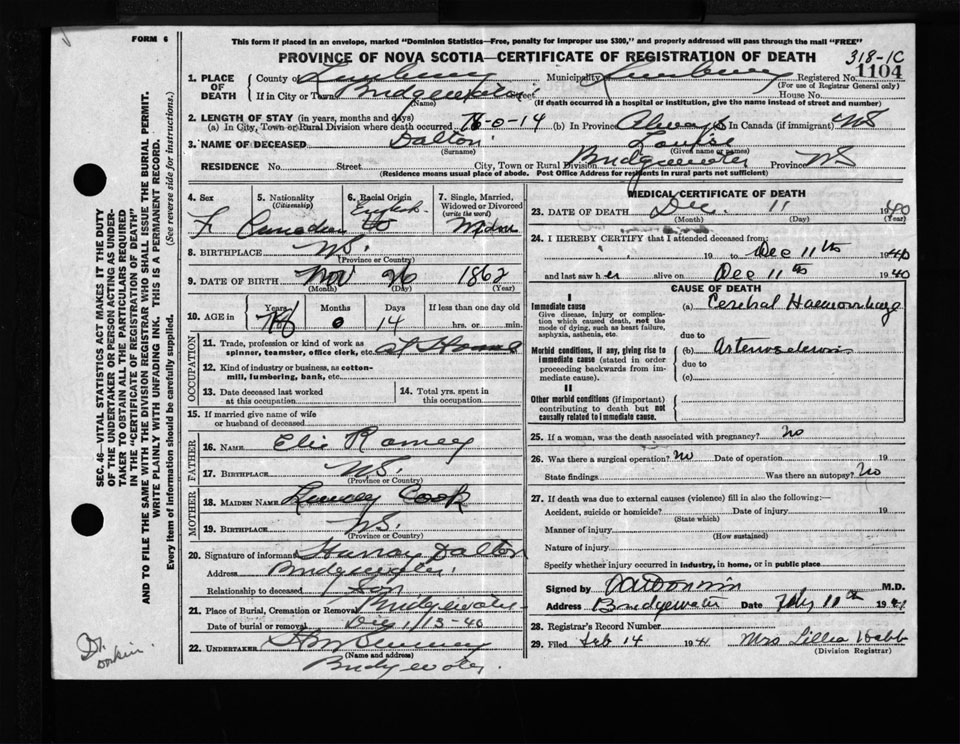 FORM 6
This form if placed in an envelope, marked "Dominion Statistics—Free, penalty for improper use $300," and properly addressed will pass through the mail "FREE"
PROVINCE OF NOVA SCOTIA—CERTIFICATE OF REGISTRATION OF DEATH
318-1C
1. PLACE OF DEATH County of Lunenburg Municipality Lunenburg Registered No. 1104
(For use of Registrar General only)
If in City or Town Bridgewater Street House No.
(Name) (If death occurred in a hospital or institution, give the name instead of street and number)
2. LENGTH OF STAY (in years, months and days)
(a) In City, Town or Rural Division where death occurred 78-0-14 (b) In Province Always (c) In Canada (if immigrant) NS
3. NAME OF DECEASED Dalton Louise
(Surname) (Given name or names)
RESIDENCE No. Street City, Town or Rural Division Bridgewater Province NS
(Residence means usual place of abode. Post Office Address for residents in rural parts not sufficient)
4. Sex F
5. Nationality (Citizenship) Canadian
6. Racial Origin English
7. Single, Married, Widowed or Divorced (write the word) Widow
8. BIRTHPLACE NS.
(Province or Country)
9. DATE OF BIRTH Nov 26 1862
(Month) (Day) (Year)
10. AGE in Years 78 Months 0 Days 14 If less than one day
hrs. or min.
OCCUPATION
11. Trade, profession or kind of work as spinner, teamster, office clerk, etc. at Home
12. Kind of industry or business, as cotton-mill, lumbering, bank, etc.
13. Date deceased last worked at this occupation
14. Total yrs. spent in this occupation
15. If married give name of wife or husband of deceased
FATHER
16. NAME Ramey
17. BIRTHPLACE NS.
(Province or Country)
MOTHER
18. MAIDEN NAME Cook
19. BIRTHPLACE NS.
(Province or Country)
20. Signature of informant Dalton
Address Bridgewater
Relationship to deceased Son
21. Place of Burial, Cremation or Removal Bridgewater
Date of burial or removal Dec 13-40
22. UNDERTAKER
(Name and address)
Bridgewater
MEDICAL CERTIFICATE OF DEATH
23. DATE OF DEATH Dec. 11 1940
(Month) (Day) (Year)
24. I HEREBY CERTIFY that I attended deceased from:
19 to Dec 11th 1940
and last saw her alive on Dec 11th 1940
CAUSE OF DEATH
I
Immediate cause
Give disease, injury or complication which caused death, not the mode of dying, such as heart failure, asphyxia, asthenia, etc.
(a) Cerebral Haemorrhage
due to
Morbid conditions, if any, giving rise to immediate cause (stated in order proceeding backwards from immediate cause).
(b) Arteriosclerosis
due to
(c)
II
Other morbid conditions (if important) contributing to death but not causally related to immediate cause.
25. If a woman, was the death associated with pregnancy? No
26. Was there a surgical operation? No Date of operation 19
State findings Was there an autopsy? No
27. If death was due to external causes (violence) fill in also the following:—
Accident, suicide or homicide? Date of injury 19
(State which)
Manner of injury
(How sustained)
Nature of injury
Specify whether injury occurred in industry, in home, or in public place
Signed by M.D.
Address Bridgewater Date 11th 1941
28. Registrar's Record Number
29. Filed Feb 14 1941 Mrs Lillia Webb
(Division Registrar)
SEC. 46—VITAL STATISTICS ACT MAKES IT THE DUTY
OF THE UNDERTAKER OR PERSON ACTING AS UNDERTAKER TO OBTAIN ALL THE PARTICULARS REQUIRED
IN THE "CERTIFICATE OF REGISTRATION OF DEATH"
AND TO FILE THE SAME WITH THE DIVISION REGISTRAR WHO SHALL ISSUE THE BURIAL PERMIT.
WRITE PLAINLY WITH UNFADING INK. THIS IS A PERMANENT RECORD.
Every item of information should be carefully supplied. (See reverse side for instructions.)
Dr.